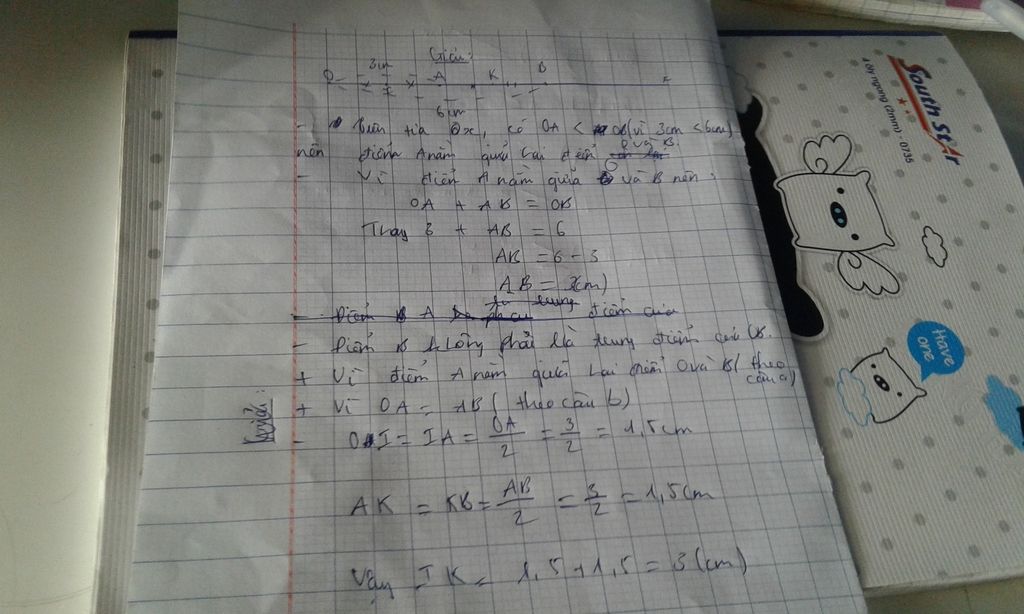 Giải:
3cm
O I A K B x
6cm
- Trên tia Ox, có OA < OB (vì 3cm < 6cm)
nên điểm A nằm giữa hai điểm O và B.
- Vì điểm A nằm giữa O và B nên:
OA + AB = OB
Thay 3 + AB = 6
AB = 6 - 3
AB = 3(cm)
- Điểm A điểm của
- Điểm B không phải là trung điểm của OB.
+ Vì điểm A nằm giữa hai điểm O và B (theo câu a)
+ Vì OA = AB (theo câu b)
- OI = IA = OA/2 = 3/2 = 1,5cm
AK = KB = AB/2 = 3/2 = 1,5cm
Vậy IK = 1,5 + 1,5 = 3 (cm)
South Star
4 ôly ngang (2mm) - 0735
Have one